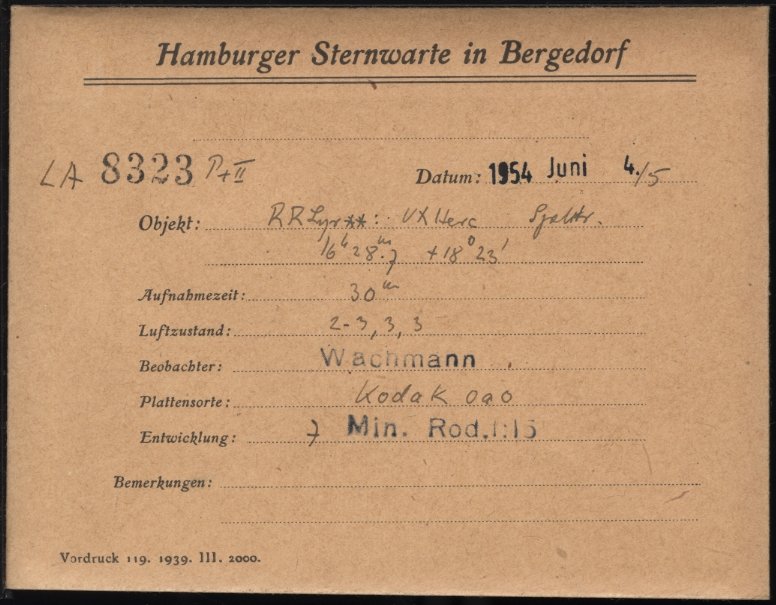 Hamburger Sternwarte in Bergedorf
LA 8323 P+II
Datum: 1954 Juni 4./5
Objekt: RR Lyr **: VX Herc
16ʰ 28ᵐ.7 +18° 23'
Aufnahmezeit: 30ᵐ
Luftzustand: 2-3, 3, 3
Beobachter: Wachmann
Plattensorte: Kodak oao
Entwicklung: 7 Min. Rod. 1:15
Bemerkungen:
Vordruck 119. 1939. III. 2000.